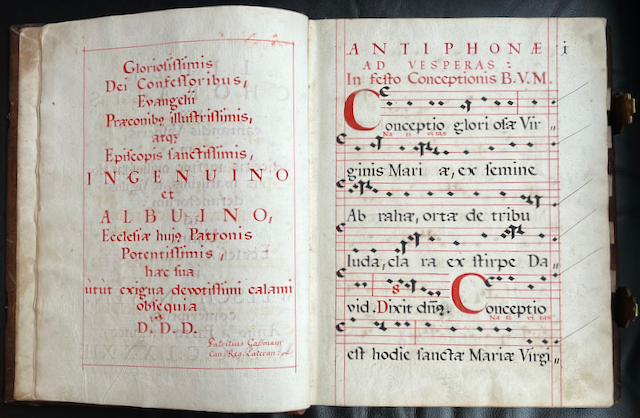 Gloriosissimis
Dei Confessoribus,
Evangelii
Præconibꝯ illustrissimis,
atqꝫ
Episcopis sanctissimis,
INGENUINO
et
ALBUINO,
Ecclesiæ hujꝯ Patronis
Potentissimis,
hæc sua
utùt exigua devotissimi calami
obsequia
D. D. D.
Can. Reg. Lateran:
ANTIPHONÆ
i
AD VESPERAS:
In festo Conceptionis B.V.M.
Conceptio glori osæ Vir
Na ti vi tas
ginis Mari æ, ex semine
Ab rahæ, ortæ de tribu
Iuda, cla ra ex stirpe Da
8
vid. Dixit dñꝯ. Conceptio
Na ti vi tas
est hodie sanctæ Mariæ Virgi